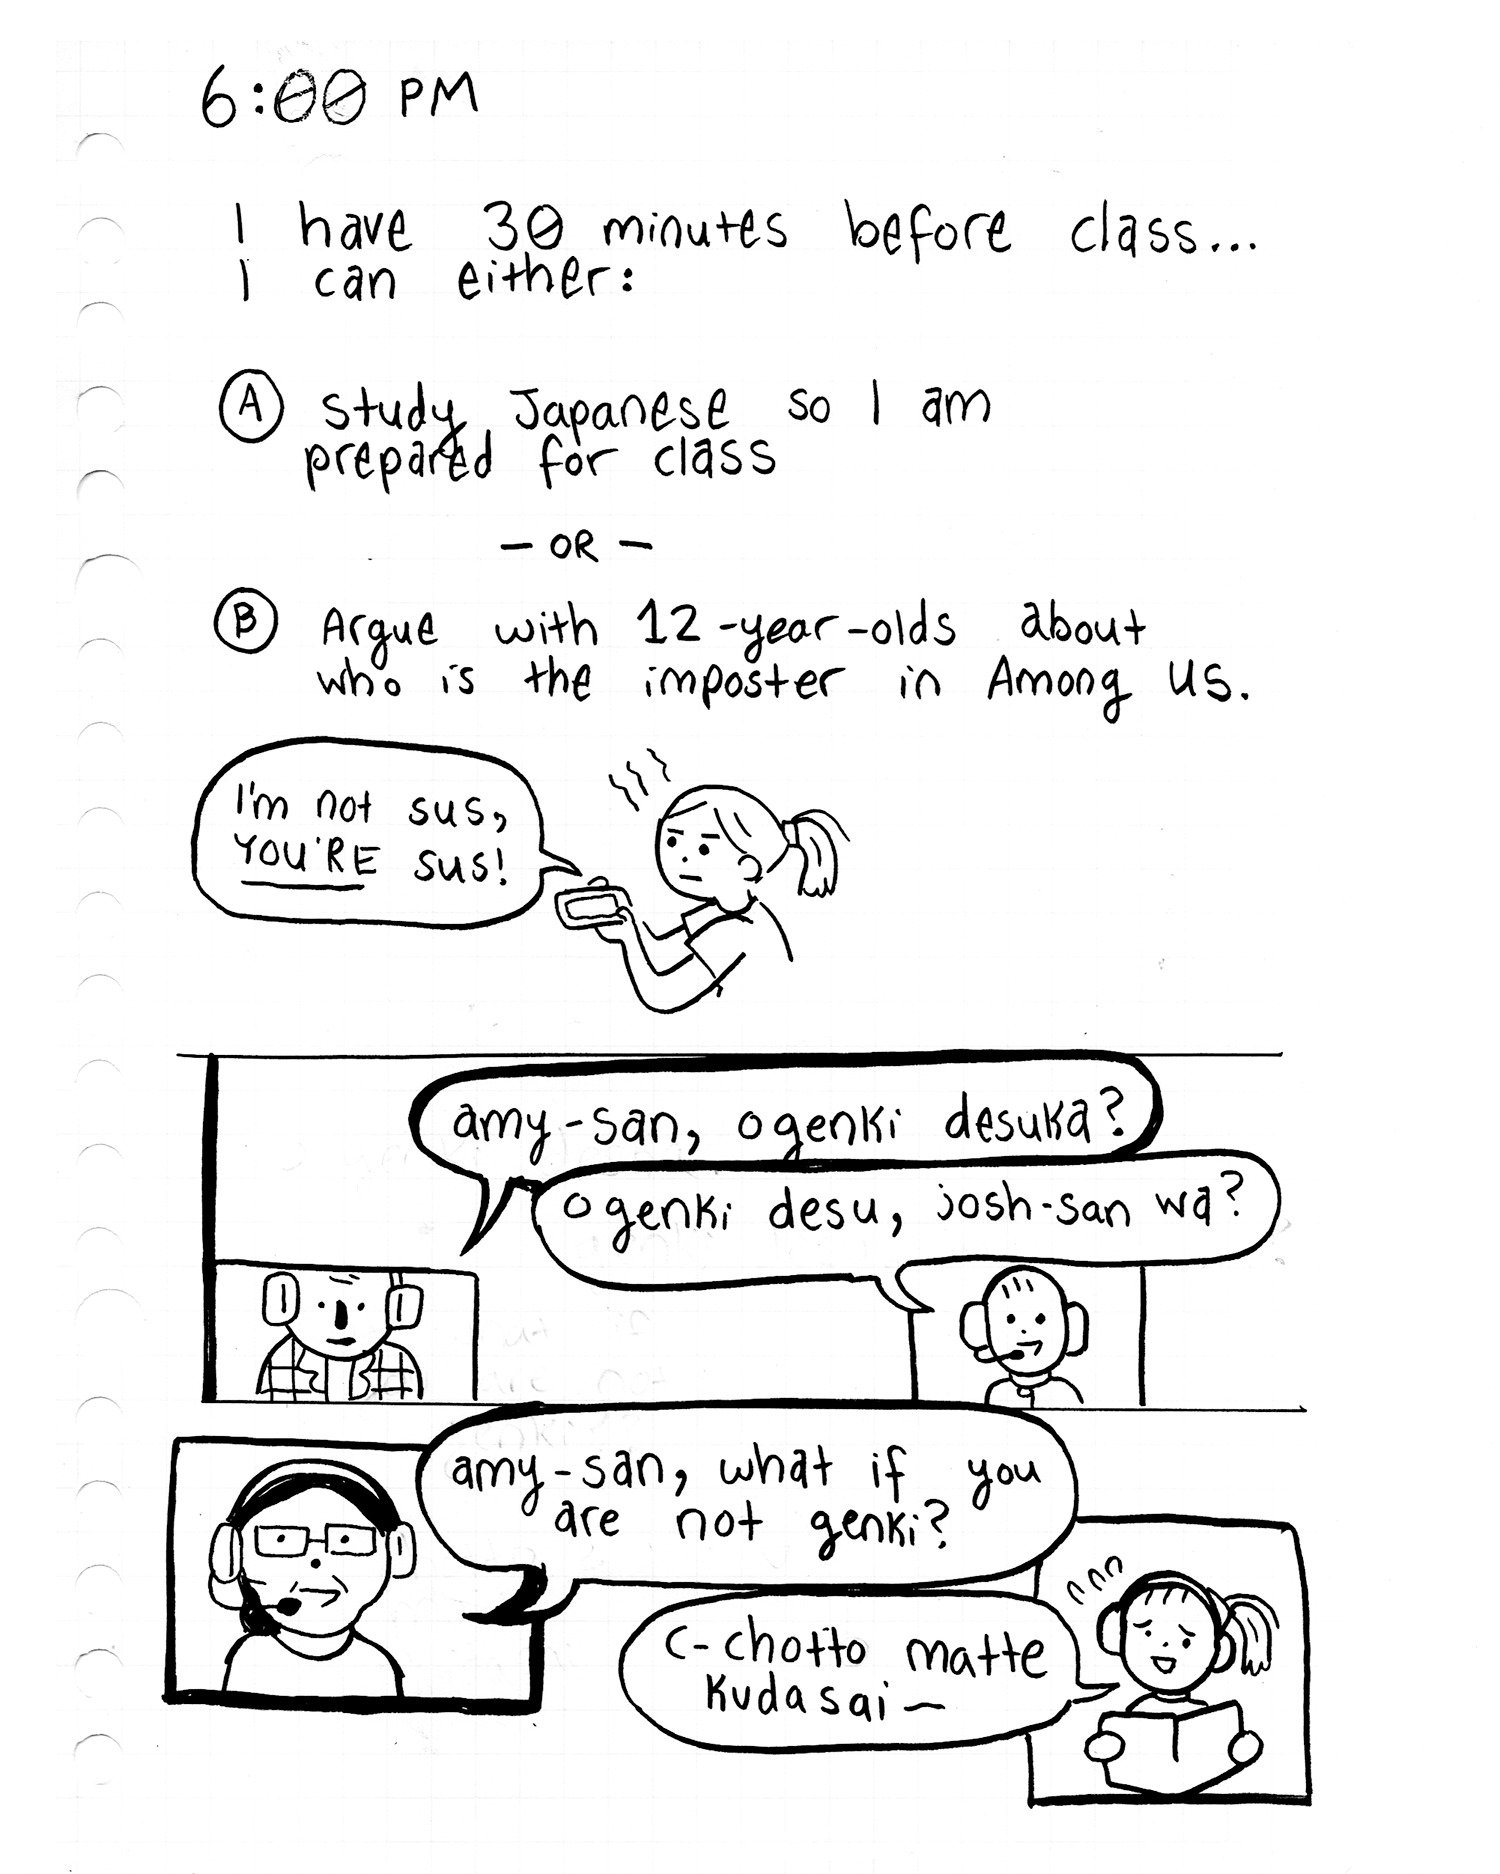 6:00 PM
I have 30 minutes before class...
I can either:
A study Japanese so I am
prepared for class
- OR -
B Argue with 12-year-olds about
who is the imposter in Among Us.
I'm not sus,
YOU'RE sus!
amy-san, ogenki desuka?
ogenki desu, josh-san wa?
amy-san, what if you
are not genki?
C-chotto matte
kudasai —